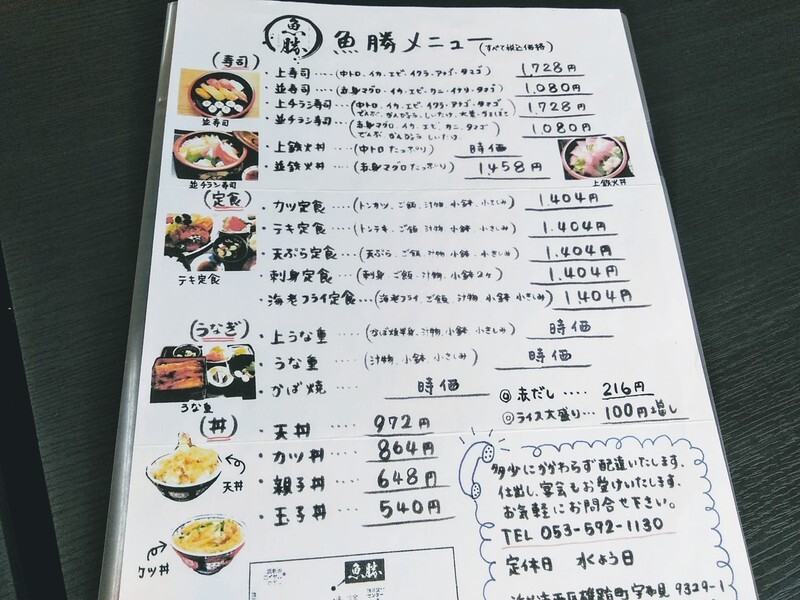 魚勝
魚勝メニュー (すべて税込価格)
(寿司)
・上寿司‥‥(中トロ・イカ・エビ・イクラ・アナゴ・タマゴ) 1,728円
・並寿司‥‥(赤身マグロ・イカ・エビ・カニ・イナリ・タマゴ) 1,080円
・上チラシ寿司‥‥(中トロ、イカ、エビ、イクラ・アナゴ・タマゴ
でんぶ かんぴょう しいたけ、大葉・かまぼこ) 1,728円
・並チラシ寿司‥‥(赤身マグロ、イカ、エビ、カニ、タマゴ
でんぶ かんぴょう しいたけ) 1,080円
・上鉄火丼‥‥(中トロ たっぷり) 時価
・並鉄火丼‥‥(赤身マグロたっぷり) 1,458円
並寿司
並チラシ寿司
上鉄火丼
(定食)
・カツ定食‥‥(トンカツ、ご飯、汁物、小鉢、小さしみ) 1,404円
・テキ定食‥‥(トンテキ、ご飯、汁物、小鉢、小さしみ) 1,404円
・天ぷら定食‥‥(天ぷら、ご飯、汁物、小鉢、小さしみ) 1,404円
・刺身定食‥‥(刺身、ご飯、汁物、小鉢2ケ) 1,404円
・海老フライ定食‥‥(海老フライ、ご飯、汁物 小鉢 小さしみ) 1,404円
テキ定食
(うなぎ)
・上うな重‥‥(かば焼半身、汁物、小鉢、小さしみ) 時価
・うな重‥‥(汁物、小鉢、小さしみ) 時価
・かば焼‥‥ 時価
うな重
◎赤だし‥‥ 216円
◎ライス大盛り‥‥100円増し
(丼)
・天丼 972円
・カツ丼 864円
・親子丼 648円
・玉子丼 540円
天丼
カツ丼
多少にかかわらず配達いたします。
仕出し、宴会もお受けいたします。
お気軽にお問合せ下さい。
TEL 053-592-1130
定休日 水よう日
浜松市西区雄踏町宇布見 9329-1
魚勝